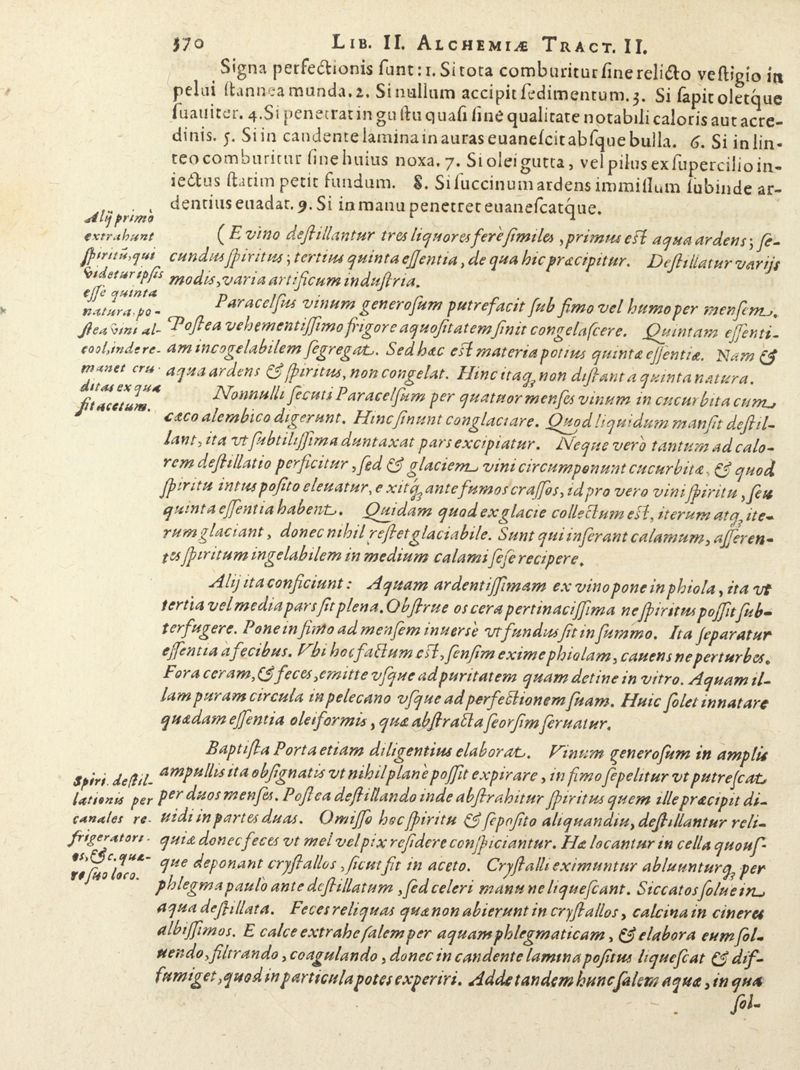 370 LIB. II. ALCHEMIÆ TRACT. II.
Signa perfectionis ſunt: 1. Si tota comburitur ſine relicto veſtigio in
pelui ſtannea munda. 2. Si nullum accipit ſedimentum. 3. Si ſapit oletque
ſuauiter. 4. Si penetrat in guſtu quaſi ſine qualitate notabili caloris aut acre-
dinis. 5. Si in candente lamina in auras euaneſcit abſque bulla. 6. Si in lin-
teo comburitur ſine huius noxa. 7. Si olei gutta, vel pilus ex ſupercilio in-
iectus ſtatim petit fundum. 8. Si ſuccinum ardens immiſſum ſubinde ar-
dentius euadat. 9. Si in manu penetret euaneſcatque.
Alij primo
extrahunt
ſpiritū, qui
videtur ipſis
eſſe quinta
natura. po-
ſtea vini al-
cool, inde re-
manet cru-
ditas ex qua
fit acetum.
(E vino deſtillantur tres liquores ferè ſimiles, primus eſt aqua ardens; ſe-
cundus ſpiritus; tertius quinta eſſentia, de qua hic præcipitur. Deſtillatur varijs
modis, varia artificum induſtria.
Paracelſus vinum generoſum putrefacit ſub fimo vel humo per menſem.
Poſtea vehementiſſimo frigore aquoſitatem ſinit congelaſcere. Quintam eſſenti-
am incōgelabilem ſegregat. Sed hæc eſt materia potius quintæ eſſentiæ. Nam &
aqua ardens & ſpiritus, non congelat. Hinc itaq; non diſtant a quinta natura.
Nonnulli ſecuti Paracelſum per quatuor menſes vinum in cucurbita cum
cæco alembico digerunt. Hinc ſinunt conglaciare. Quod liquidum manſit deſtil-
lant, ita vt ſubtiliſſima duntaxat pars excipiatur. Neque verò tantum ad calo-
rem deſtillatio perficitur, ſed & glaciem vini circumponunt cucurbitæ, & quod
ſpiritu intus poſito eleuatur, exitq; ante fumos craſſos, id pro vero vini ſpiritu, ſeu
quinta eſſentia habent. Quidam quod ex glacie collectum eſt, iterum atq; ite-
rum glaciant, donec nihil reſtet glaciabile. Sunt qui inſerant calamum, aſſeren-
tes ſpiritum ingelabilem in medium calami ſeſe recipere.
Alij ita conficiunt: Aquam ardentiſſimam ex vino pone in phiola, ita vt
tertia vel media pars ſit plena. Obſtrue os cera pertinaciſſima ne ſpiritus poſſit ſub-
terfugere. Pone in fimo ad menſem inuerſè vt fundus ſit in ſummo. Ita ſeparatur
eſſentia a fecibus. Vbi hoc factum eſt, ſenſim exime phiolam, cauens ne perturbes.
Fora ceram, & feces, emitte vſque ad puritatem quam detine in vitro. Aquam il-
lam puram circula in pelecano vſque ad perfectionem ſuam. Huic ſolet innatare
quædam eſſentia oleiformis, quæ abſtracta ſeorſim ſeruatur.
Spiri. deſtil-
lationis per
canales re-
frigeratori-
os, &c. quæ-
re ſuo loco.
Baptiſta Porta etiam diligentius elaborat. Vinum generoſum in amplis
ampullis ita obſignatis vt nihil planè poſſit expirare, in fimo ſepelitur vt putreſcat
per duos menſes. Poſtea deſtillando inde abſtrahitur ſpiritus quem ille præcipit di-
uidi in partes duas. Omiſſo hoc ſpiritu & ſepoſito aliquandiu, deſtillantur reli-
quiæ donec feces vt mel vel pix reſidere conſpiciantur. Hæ locantur in cella quouſ-
que deponant cryſtallos, ſicut fit in aceto. Cryſtalli eximuntur abluunturq; per
phlegma paulò ante deſtillatum, ſed celeri manu ne liqueſcant. Siccatos ſolue in
aqua deſtillata. Feces reliquas quæ non abierunt in cryſtallos, calcina in cineres
albiſſimos. E calce extrahe ſalem per aquam phlegmaticam, & elabora eum ſol-
uendo, filtrando, coagulando, donec in candente lamina poſitus liqueſcat & dif-
fumiget, quod in particula potes experiri. Adde tandem hunc ſalem aquæ, in qua
ſol-